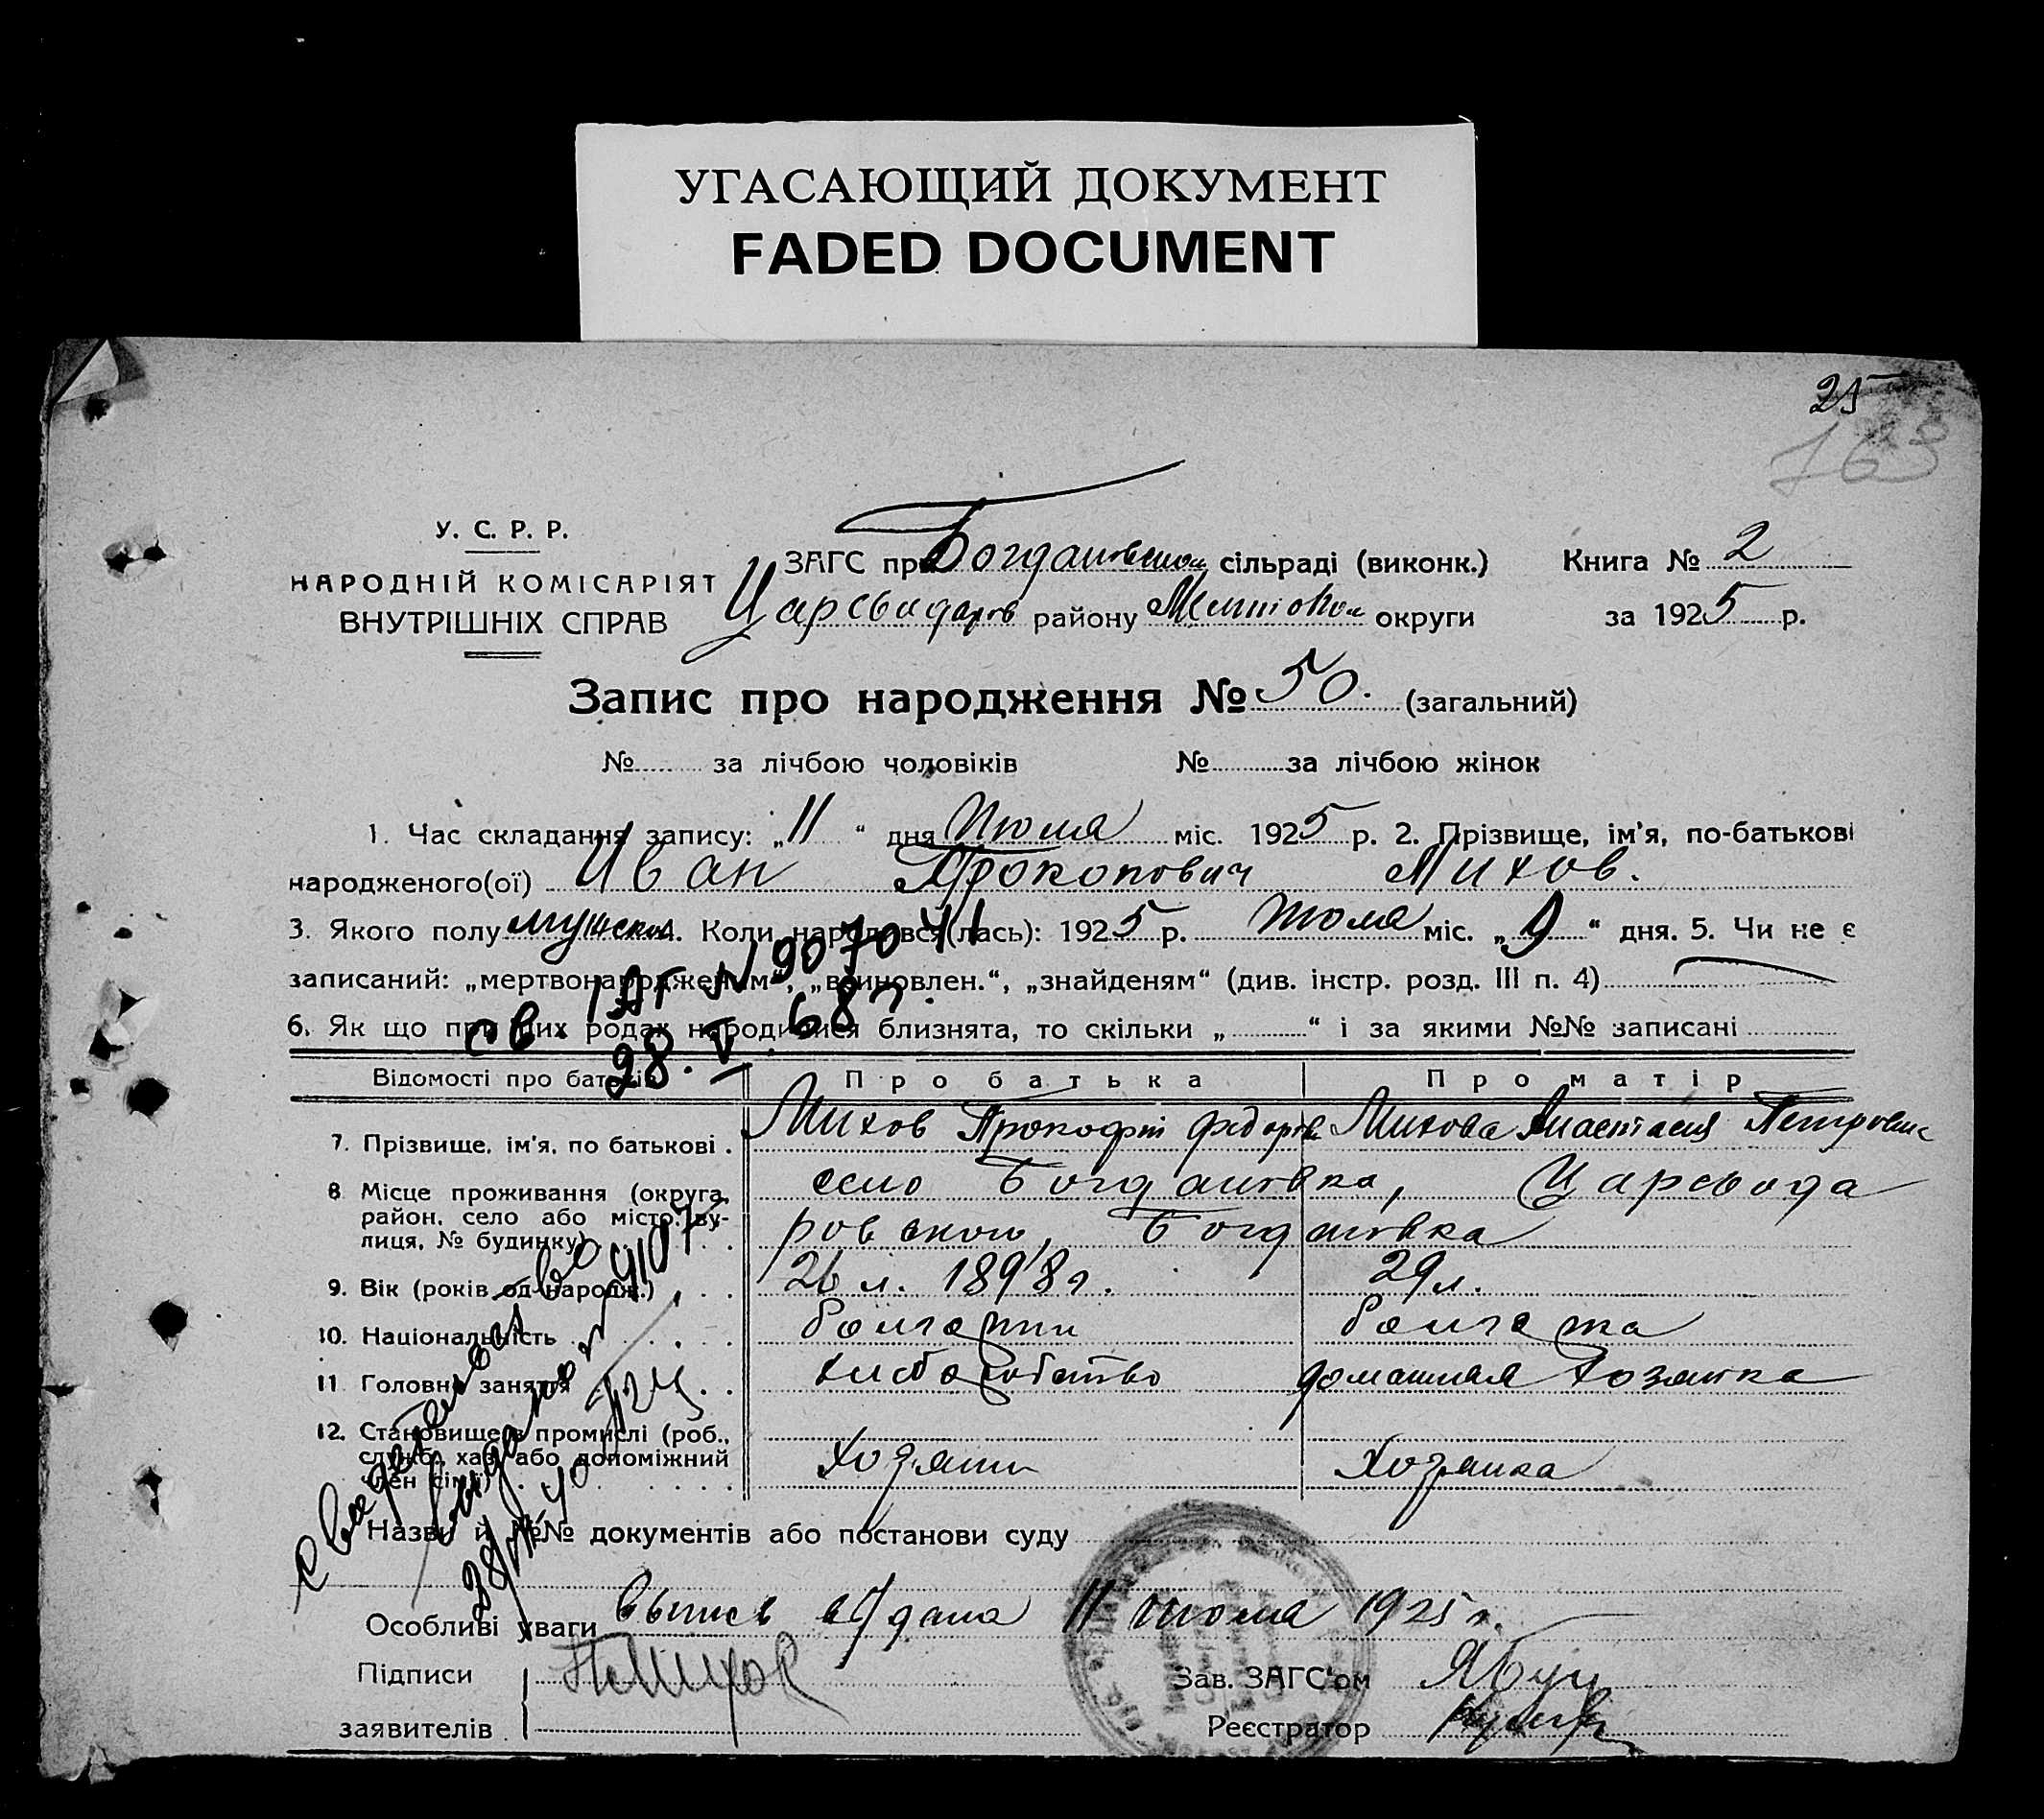 УГАСАЮЩИЙ ДОКУМЕНТ
FADED DOCUMENT
25
163
У. С. Р. Р.
НАРОДНІЙ КОМІСАРІЯТ
ВНУТРІШНІХ СПРАВ
ЗАГС при Богдановском сільраді (виконк.)
Царсводаров району Мелитопол округи
Книга № 2
за 1925 р.
Запис про народження № 50. (загальний)
№ за лічбою чоловіків № за лічбою жінок
1. Час складання запису: „11“ дня Июля міс. 1925 р. 2. Прізвище, ім'я, по-батькові
народженого(ої) Иван Прокопович Михов.
3. Якого полу мужской. Коли народився(лась): 1925 р. Июля міс. „9“ дня. 5. Чи не є
записаний: „мертвонародженим“, „всиновлен.“, „знайденям“ (див. інстр. розд. III п. 4)
6. Як що при цих родах народилися близнята, то скільки „ “ і за якими №№ записані
св. IАГ N 907041
28. V. 68 г.
Відомості про батьків Про батька Про матір
7. Прізвище, ім'я, по батькові Михов Прокофий Федоров Михова Анастасия Петровна
8 Місце проживання (округа, район, село або місто, вулиця, № будинку) село Богдановка, Царсвода
ровского, Богдановка
9. Вік (років од народж.) 26 л. 1898 г. 29 л.
10. Національність болгарин болгарка
11 Головне заняття хлеборобство домашняя хозяйка
12. Становище в промислі (роб., служб. хаз. або допоміжний член сім'ї) хозяин хозяйка
свидетельство
выдано N 4107
28/VI-40
Назви й №№ документів або постанови суду
Особливі уваги Выпись выдана 11 июля 1925 г.
Підписи
заявителів
П Михов
Зав. ЗАГС'ом
Реєстратор